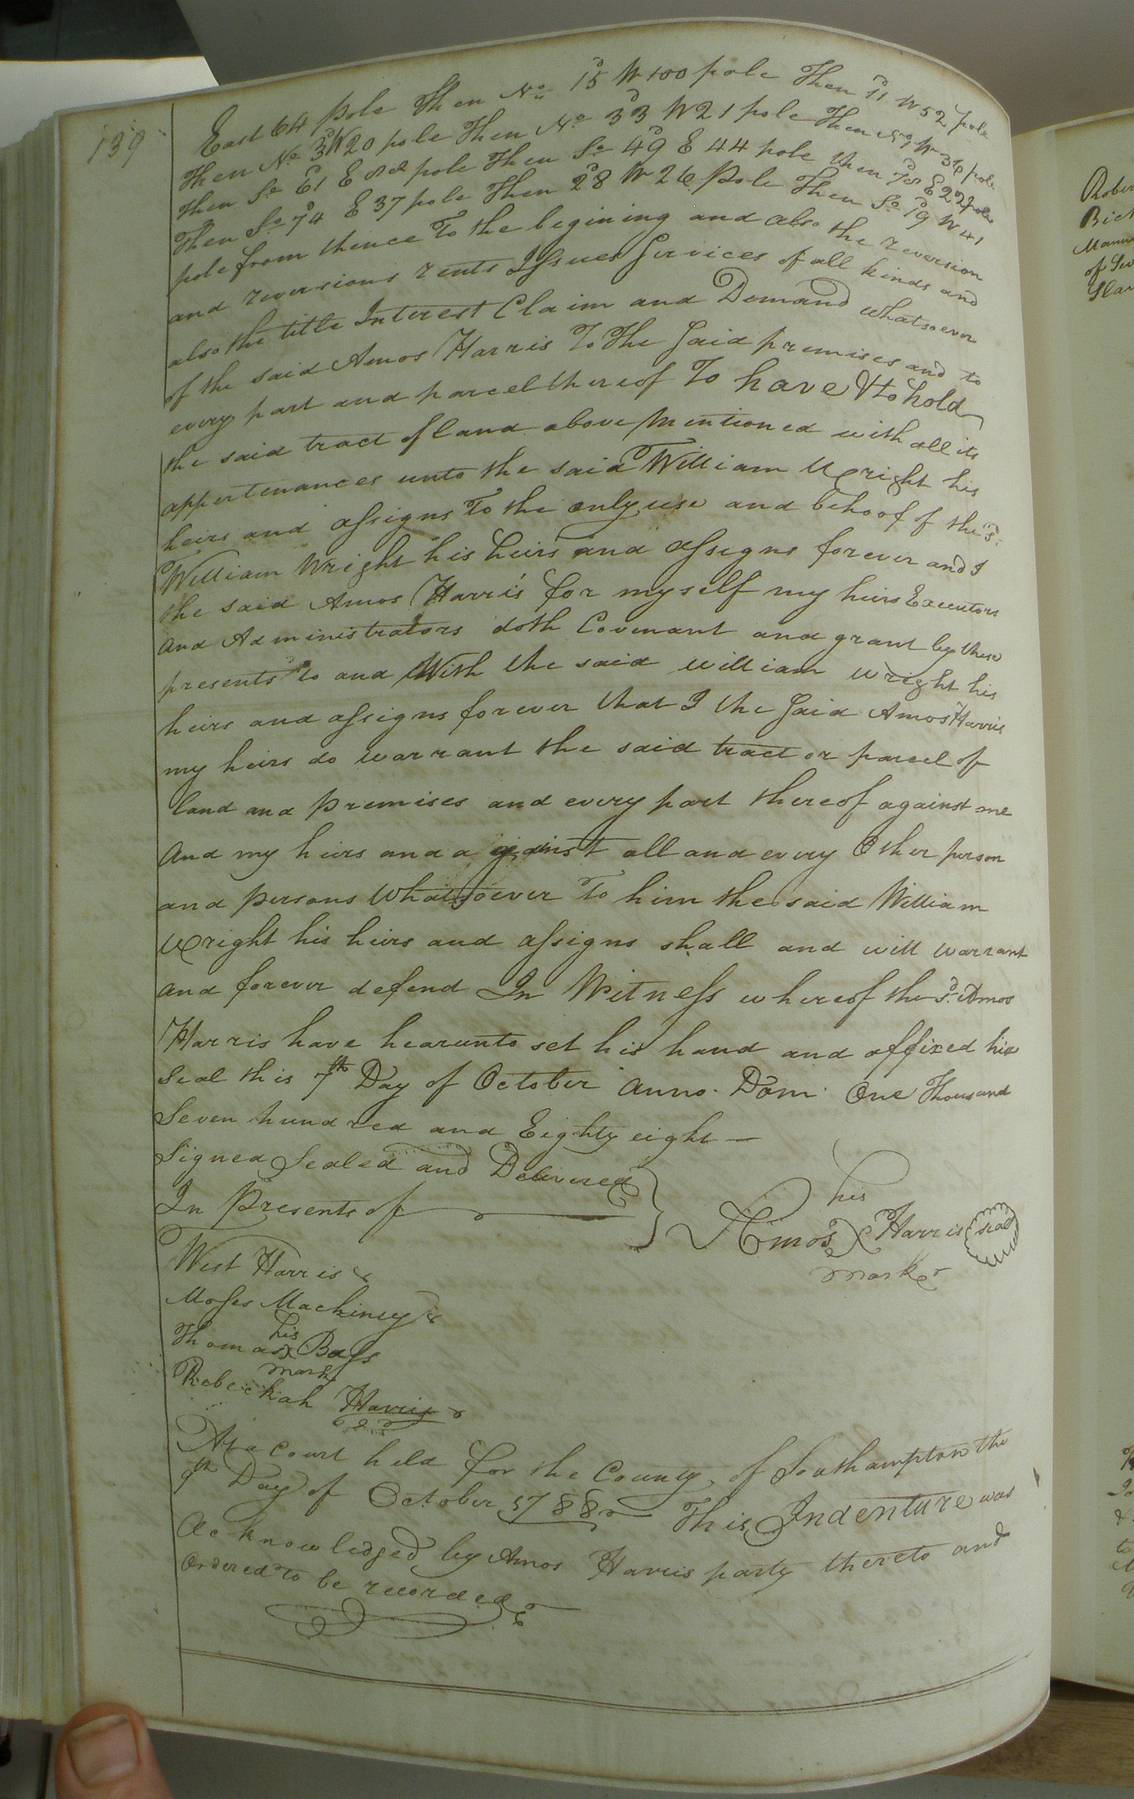 139
East 64 pole Then No. 15 W 100 pole Then 11 W 52 pole
Then No. 3 W 20 pole Then No. 33 W 21 pole Then W 36 pole
Then So. 61 E pole Then So. 49 E 44 pole then 78 E 22 pole
Then So. 74 E 37 pole Then 28 W 26 Pole Then So. 19 W 41
pole from thence To the begining and also the reversion
and reversions rents Issues Services of all kinds and
also the title Interest Claim and Demand whatsoever
of the said Amos Harris To The Said premises and to
every part and parcel thereof To have & to hold
the said tract of land above mentioned with all its
appertenances unto the said William Wright his
heirs and assigns To the only use and behoof of the sd.
William Wright his heirs and assigns forever and I
the said Amos Harris for myself my heirs Executors
and Administrators doth Covenant and grant by these
presents to and With the said william wright his
heirs and assigns forever that I the Said Amos Harris
my heirs do warrant the said tract or parcel of
land and premises and every part thereof against me
And my heirs and against all and every Other person
and persons Whatsoever To him the said William
Wright his heirs and assigns shall and will warrant
and forever defend In Witness whereof the sd. Amos
Harris have hearunto set his hand and affixed his
Seal this 7th Day of October Anno. Dom. One Thousand
Seven hundred and Eighty eight —
Signed Sealed and Delivered
In Presents of
his
Amos X Harris seal
mark
West Harris
Moses Mackinsey
his
Thomas X Bass
mark
Rebeckah Harris
At a Court held for the County of Southampton the
9th Day of October 1788 This Indenture was
Acknowledged by Amos Harris party thereto and
Ordered to be recorded